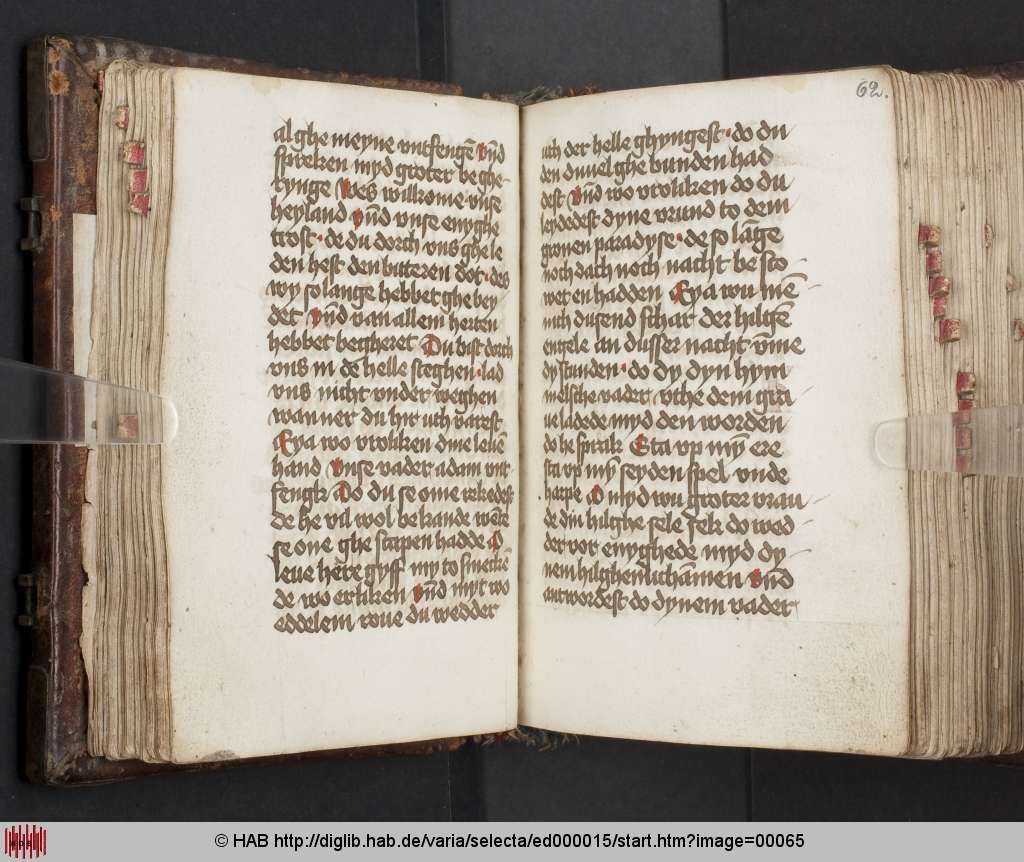 al ghe meyne vntfengē vn̄d
spreken myd groter be ghe
rynge Wes wilkome vnse
heyland vn̄d vnse enyghe
trost · de du dorch vns ghe le
den hest den bitteren dot · des
wy so lange hebbet ghe bey
det vn̄d van allem herten
hebbet begheret Du bist dorch
vns in de helle steghen · lad
vns nicht vnder weghen
wanner du hir vth varest
Eya wo vroliken dine leuē
hand vnse vader adam vnt
fengk do du se ome rekedest
de he vil wol be kande
se one ghe scapen hadde O
leue here gyff my to smecke
de wo erliken vn̄d myt wo
eddelem roue du wedder
62.
vth der helle ghyngest · do du
den duuel ghe bunden had
dest vn̄d wo vroliken do du
leydedest dyne vrund to dem
gronen paradyse · de so lāge
noch dach noch nacht be sto
wet en hadden Eya wu mē
nich dusend schar der hilgē
engele an dusser nacht vm̄e
dy stunden · do dy dyn hym
melsche vader vthe dem gra
ue ladede myd den worden
do he sprak Sta vp my̅ ere
sta vp my̅ seyden spel vnde
harpe O myd wu groter vrau
de din hilghe sele sek do wed
der vor enyghede myd dy
nem hilghen lichāmen vn̄d
antwordest do dynem vader
© HAB http://diglib.hab.de/varia/selecta/ed000015/start.htm?image=00065